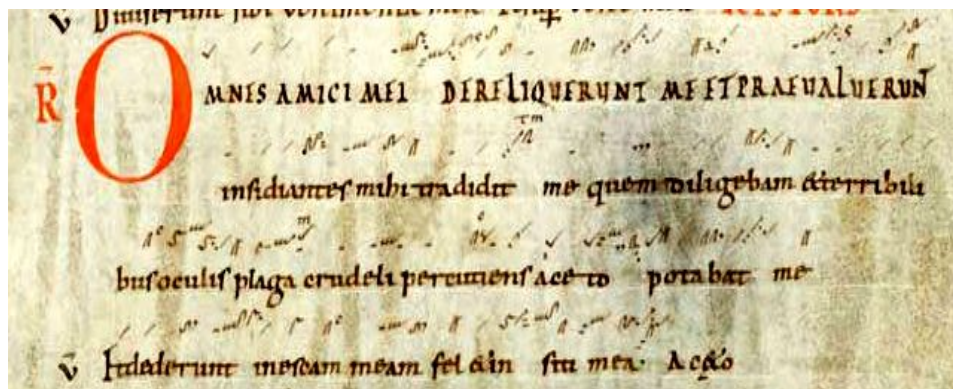 OMNES AMICI MEI DERELIQUERUNT ME ET PRAEUALUERUNT
insidiantes mihi tradidit me quem diligebam & terribili
bus oculis plaga crudeli percutiens aceto potabat me
dederunt in escam meam fel & in siti mea